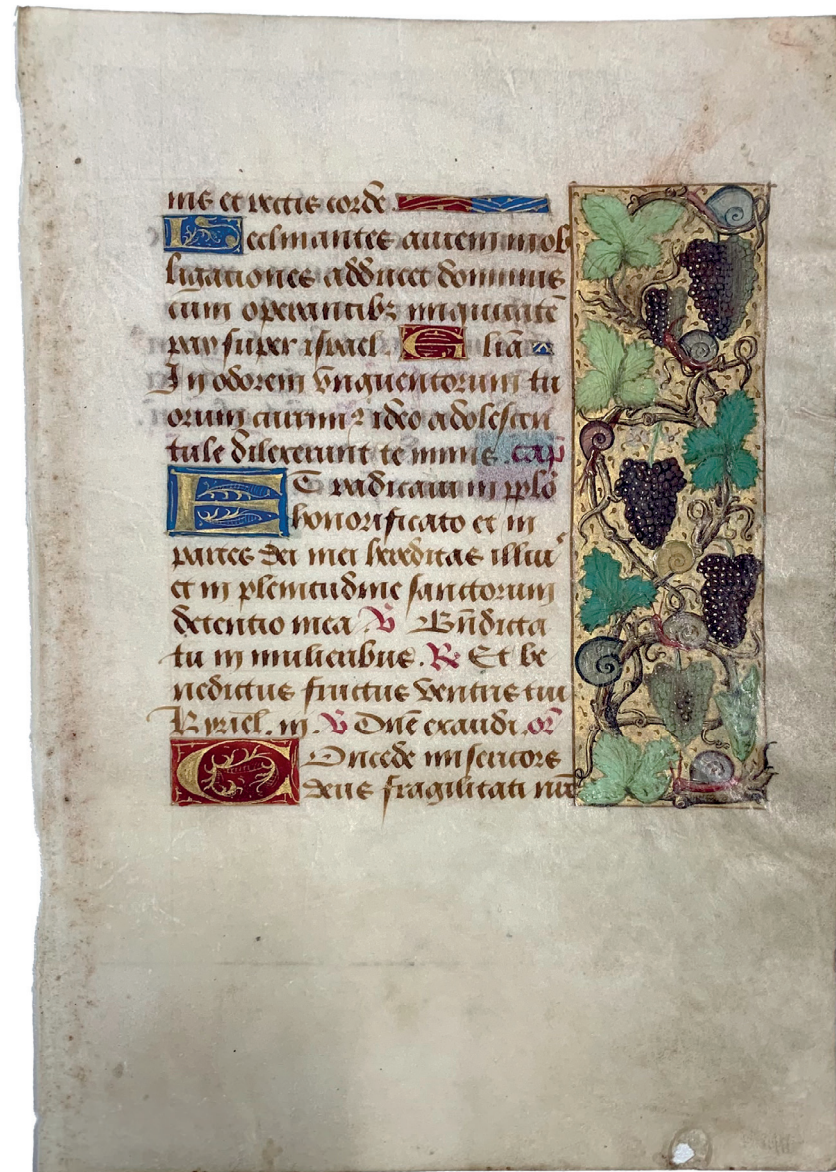 nis et rectis corde
Declinantes autem in ob
ligationes adducet dominus
cum operantibꝫ iniquitatē
pax super israel. Gliā
In odorem vnguentorum tu
orum currimꝰ ⁊ ideo adolescen
tule dilexerunt te nimis. cap̄
ET radicaui in pplō
honorificato et in
partes dei mei hereditas illiuꝰ
et in plenitudine sanctorum
detentio mea ℣ Bn̄dicta
tu in mulieribus. ℟ Et be
nedictus fructus ventris tui
Kyriel. in. ℣ Dn̄e exaudi. or̄
COncede misericors
deus fragilitati nrē